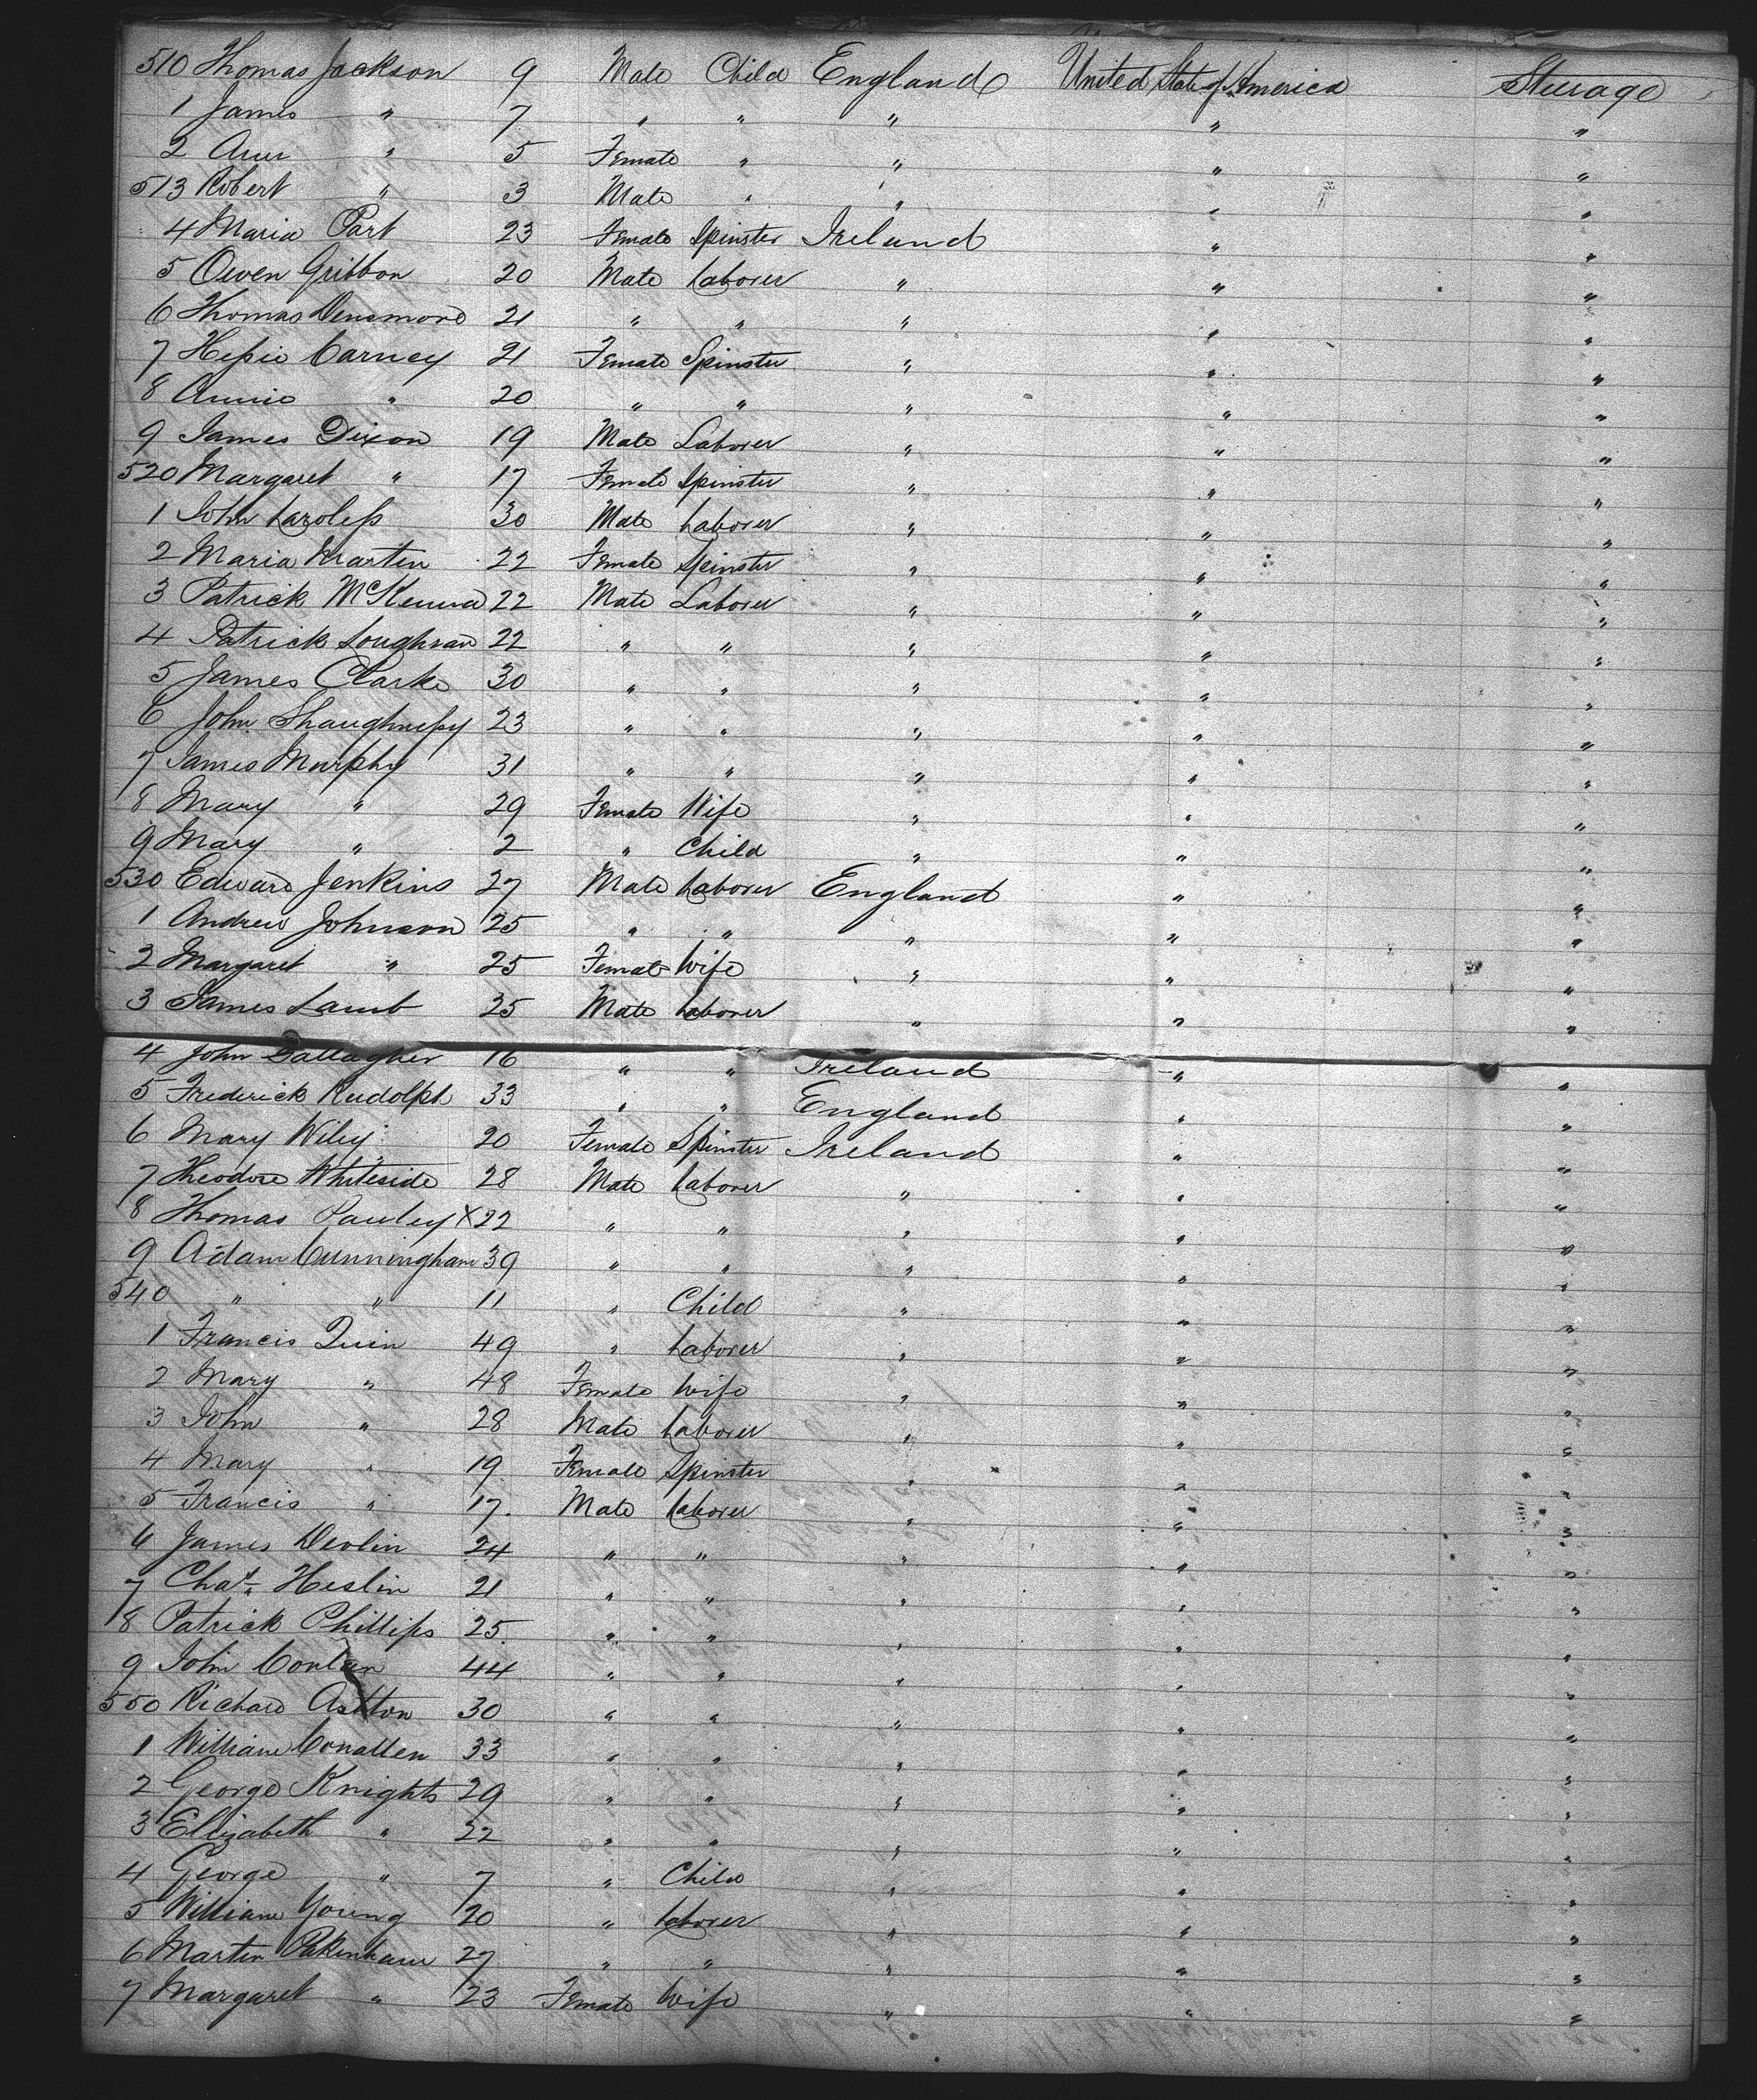 510 Thomas Jackson 9 Male Child England United State of America Steerage
1 James " 7 " " " " "
2 Ann " 5 Female " " " "
513 Robert " 3 Male " " " "
4 Maria Part 23 Female Spinster Ireland " "
5 Owen Gribbon 20 Male Laborer " " "
6 Thomas Densmore 21 " " " " "
7 Hessie Carney 21 Female Spinster " " "
8 Annie " 20 " " " " "
9 James Dixon 19 Male Laborer " " "
520 Margaret " 17 Female Spinster " " "
1 John 30 Male Laborer " " "
2 Maria Martin 22 Female Spinster " " "
3 Patrick McKenna 22 Male Laborer " " "
4 Patrick Loughran 22 " " " " "
5 James Clarke 30 " " " " "
6 John Shaughnessy 23 " " " " "
7 James Murphy 31 " " " " "
8 Mary " 29 Female Wife " " "
9 Mary " 2 " Child " " "
530 Edward Jenkins 27 Male Laborer England " "
1 Andrew Johnson 25 " " " " "
2 Margaret " 25 Female Wife " " "
3 James Lamb 35 Male Laborer " " "
4 John Gallagher 16 " " Ireland " "
5 Frederick Rudolph 33 " " England " "
6 Mary Wiley 20 Female Spinster Ireland " "
7 Theodore Whiteside 28 Male Laborer " " "
8 Thomas Pauley X 22 " " " " "
9 Adam Cunningham 39 " " " " "
540 " " 11 " Child " " "
1 Francis Quin 49 " Laborer " " "
2 Mary " 48 Female Wife " " "
3 John " 28 Male Laborer " " "
4 Mary " 19 Female Spinster " " "
5 Francis " 17 Male Laborer " " "
6 James Devlin 24 " " " " "
7 Chas Heslin 21 " " " " "
8 Patrick Phillips 25 " " " " "
9 John Conlan 44 " " " " "
550 Richard Ashton 30 " " " " "
1 William Conallen 33 " " " " "
2 George Knights 29 " " " " "
3 Elizabeth " 22 " " " " "
4 George " 7 " Child " " "
5 William Young 20 " Laborer " " "
6 Martin Pakenham 27 " " " " "
7 Margaret " 23 Female Wife " " "